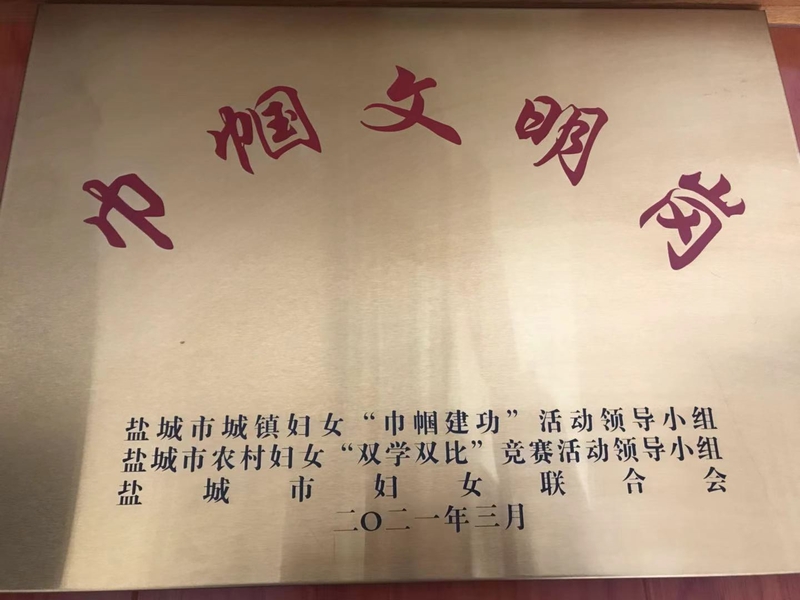 巾帼文明岗
盐城市城镇妇女“巾帼建功”活动领导小组
盐城市农村妇女“双学双比”竞赛活动领导小组
盐城市妇女联合会
二〇二一年三月